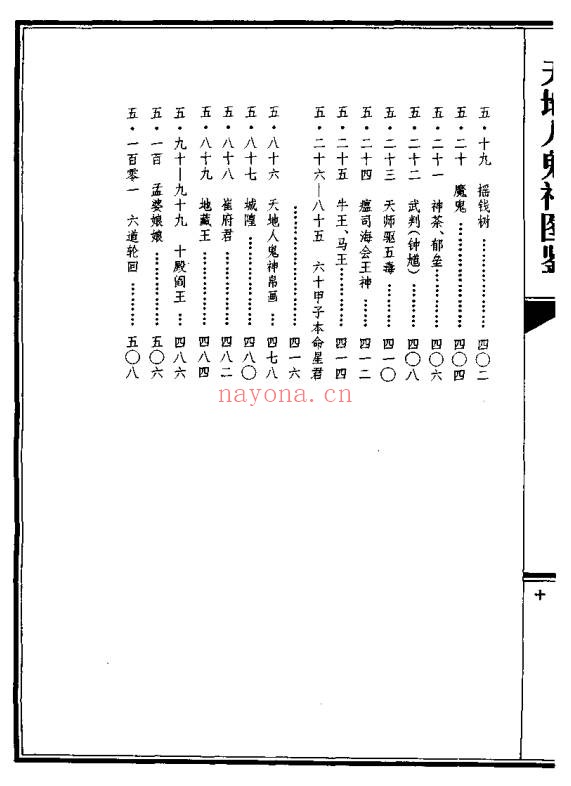 天地人鬼神图鉴
五·十九 摇钱树………四〇二
五·二十 魔鬼………四〇四
五·二十一 神茶、郁垒………四〇六
五·二十二 武判(钟馗)………四〇八
五·二十三 天师驱五毒………四一〇
五·二十四 瘟司海会王神…四一二
五·二十五 牛王、马王………四一四
五·二十六—八十五 六十甲子本命星君
………四一六
五·八十六 天地人鬼神帛画…四七八
五·八十七 城隍………四八〇
五·八十八 崔府君………四八二
五·八十九 地藏王………四八四
五·九十—九十九 十殿阎王…四八六
五·一百 孟婆娘娘………五〇六
五·一百零一 六道轮回………五〇八
十
nayona.cn